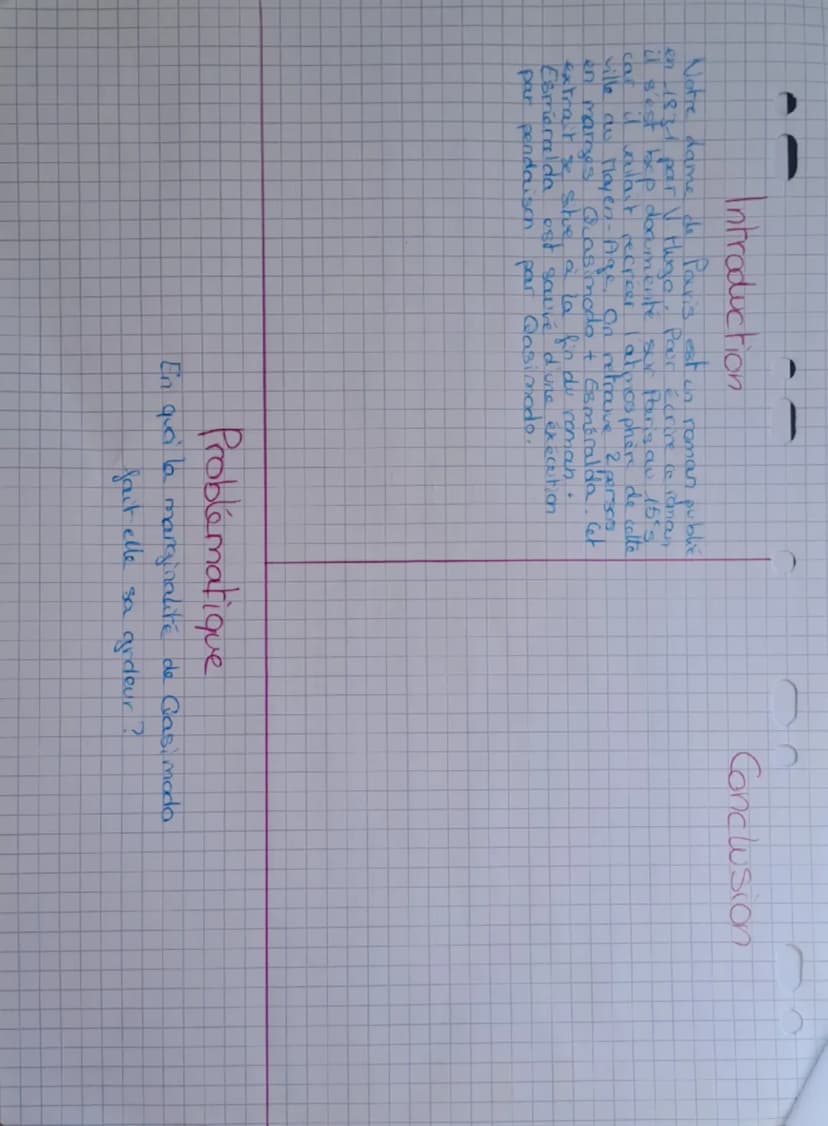 Introduction
Notre dame de Paris est un roman publié
en 1831 par V Hugo. Pour écrire ce roman,
il s'est bcp documenté sur Paris au 15e s
car il voulait recréer l'atmosphère de cette
ville au Moyen-Age. On retrouve 2 persos
en marges Quasimodo + Esméralda. Cet
extrait se situe à la fin du roman.
Esméralda est sauvé d'une éxécution
par pendaison par Quasimodo.
Conclusion
Problématique
En quoi la marginalité de Quasimodo
fait elle sa grdeur ?